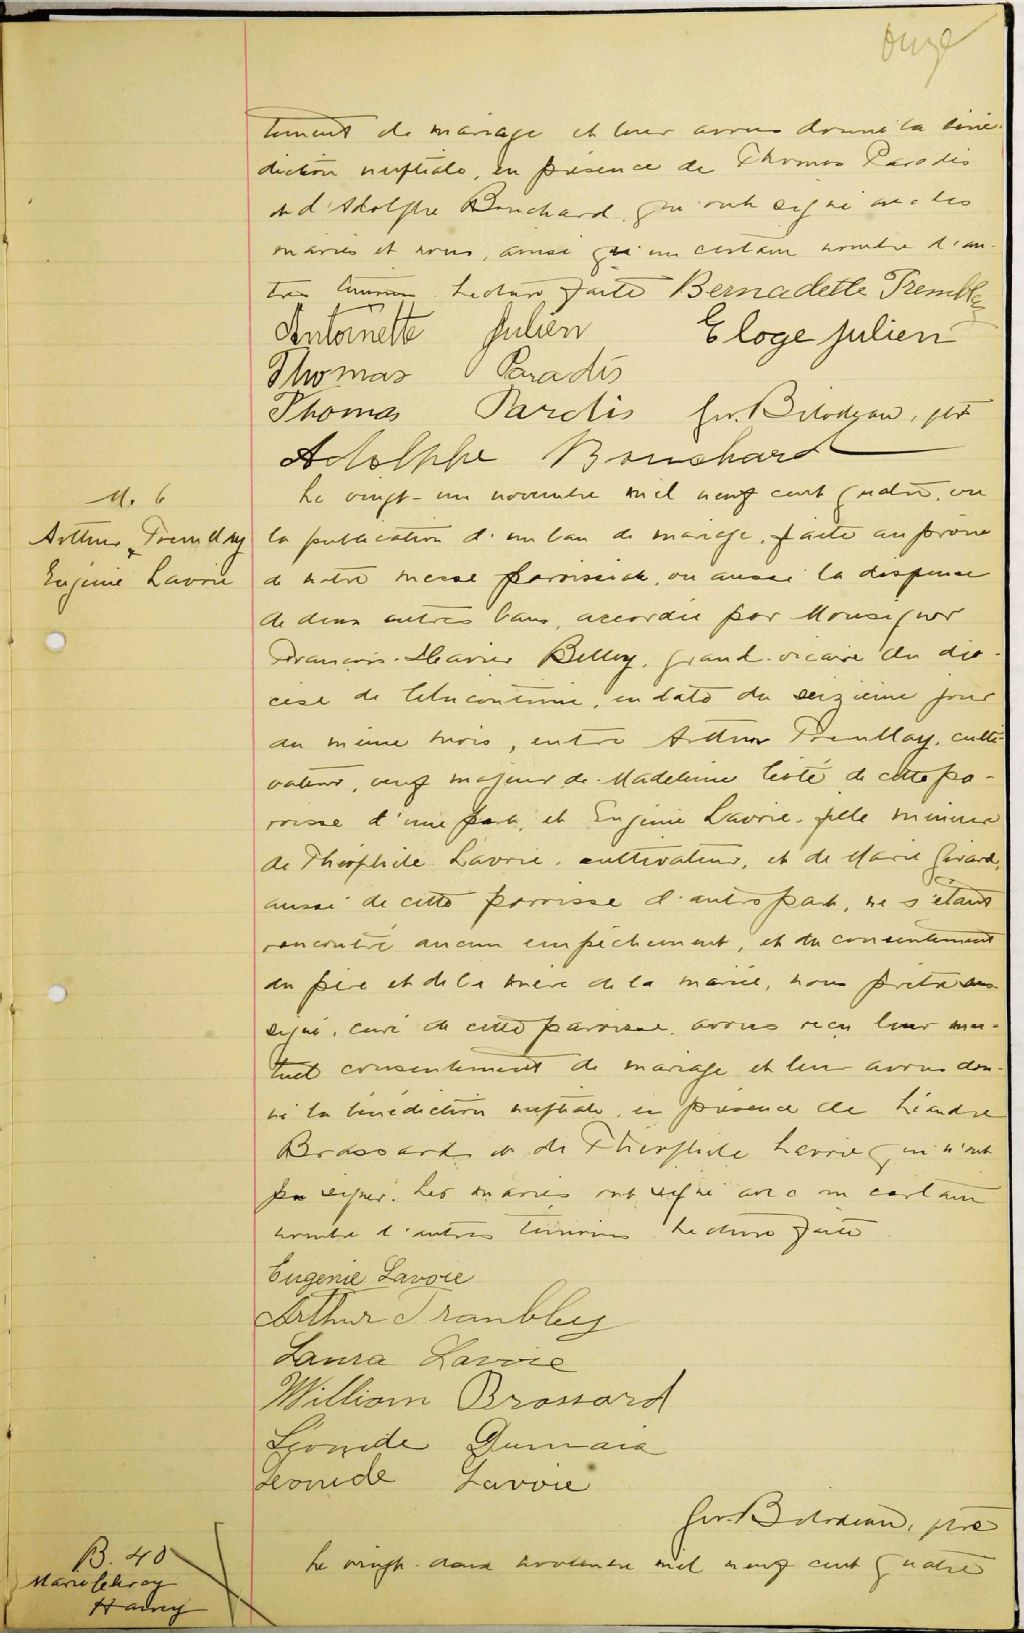 onze
tement de mariage et leur avons donné la béné-
diction nuptiale, en présence de Thomas Paradis
et d'Adolphe Bouchard, qui ont signé avec les
mariés et nous, ainsi qu'un certain nombre d'au-
tres témoins. Lecture faite Bernadette Tremblay
Antoinette Julien Eloge Julien
Thomas Paradis
Thomas Pardis Geo. Bilodeau, ptre
Adolphe Bouchard
M. 6
Arthur Tremblay
&
Eugénie Lavoie
Le vingt-un novembre mil neuf cent quatre, vu
la publication d'un ban de mariage, faite au prône
de notre messe paroissiale, vu aussi la dispense
de deux autres bans, accordée par Monsignor
François-Xavier Belley, grand-vicaire du dio-
cèse de Chicoutimi, en date du seizième jour
du même mois, entre Arthur Tremblay, culti-
vateur, veuf majeur de Madeleine Côté de cette pa-
roisse d'une part, et Eugénie Lavoie, fille mineure
de Théophile Lavoie, cultivateur, et de Marie Girard,
aussi de cette paroisse d'autre part, ne s'étant
rencontré aucun empêchement, et du consentement
du père et de la mère de la mariée, nous prêtre sous-
signé, curé de cette paroisse, avons reçu leur mu-
tuel consentement de mariage et leur avons don-
né la bénédiction nuptiale, en présence de Léandre
Brassard et de Théophile Lavoie qui n'ont
pu signer. Les mariés ont signé avec un certain
nombre d'autres témoins. Lecture faite
Eugenie Lavoie
Arthur Trambley
Laura Lavoie
William Brassard
Léonide Dumais
Leonide Lavoie
Geo. Bilodeau, ptre
B. 40
Marie
Harvey
Le vingt-deux novembre mil neuf cent quatre